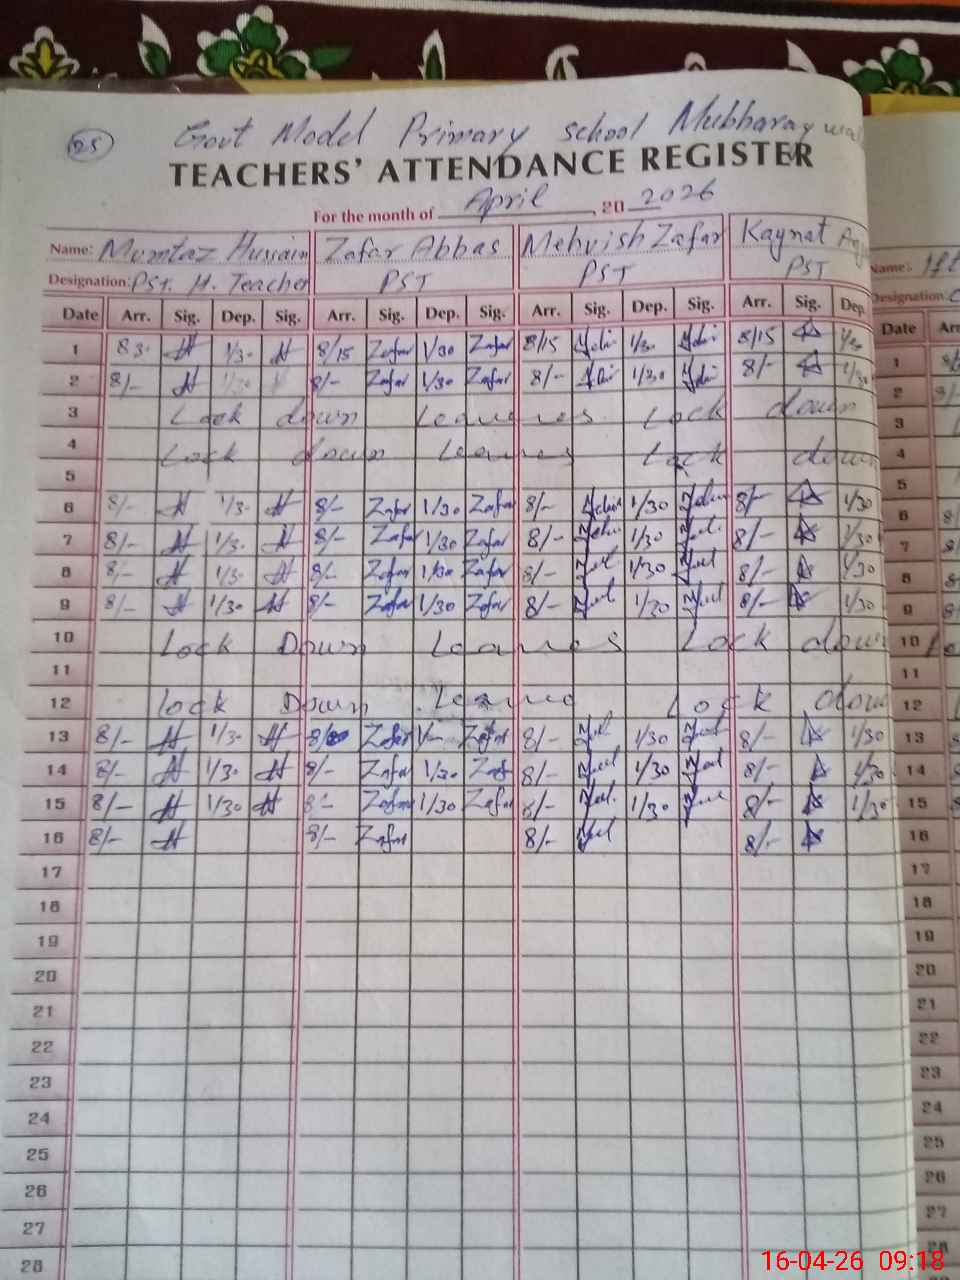 25
Govt Model Primary school Mubharay wal
TEACHERS' ATTENDANCE REGISTER
For the month of April 20 2026
Name: Mumtaz Hussain Zafar Abbas Mehvish Zafar Kaynat
Designation: PST. H. Teacher PST PST PST
Date Arr. Sig. Dep. Sig. Arr. Sig. Dep. Sig. Arr. Sig. Dep. Sig. Arr. Sig. Dep.
1 8 3- 1/3- 8/15 Zafar 1/30 Zafar 8/15 1/3- 8/15
2 8/- 1/30 8/- Zafar 1/30 Zafar 8/- 1/30 8/- 1/30
3 Lock down Leaves Lock down
4 Lock down Leaves Lock down
5
6 8/- 1/3- 8/- Zafar 1/30 Zafar 8/- 1/30 8/- 1/30
7 8/- 1/3- 8/- Zafar 1/30 Zafar 8/- 1/30 8/- 1/30
8 8/- 1/3- 8/- Zafar 1/30 Zafar 8/- 1/30 8/- 1/30
9 8/- 1/30 8/- Zafar 1/30 Zafar 8/- 1/30 8/- 1/30
10 Lock Down Leaves Lock down
11
12 Lock Down Leave Lock down
13 8/- 1/3- Zafar Zafar 8/- 1/30 8/- 1/30
14 8/- 1/3- 8/- Zafar 1/30 Zaf 8/- 1/30 8/- 1/30
15 8/- 1/30 8/- Zafar 1/30 Zafar 8/- 1/30 8/- 1/30
16 8/- 8/- Zafar 8/- 8/-
17
18
19
20
21
22
23
24
25
26
27
28
Name: Ift
Designation:
Date Arr
1
2
3
4
5
6
7
8
9
10
11
12
13
14
15
16
17
18
19
20
21
22
23
24
25
26
27
28
16-04-26 09:18